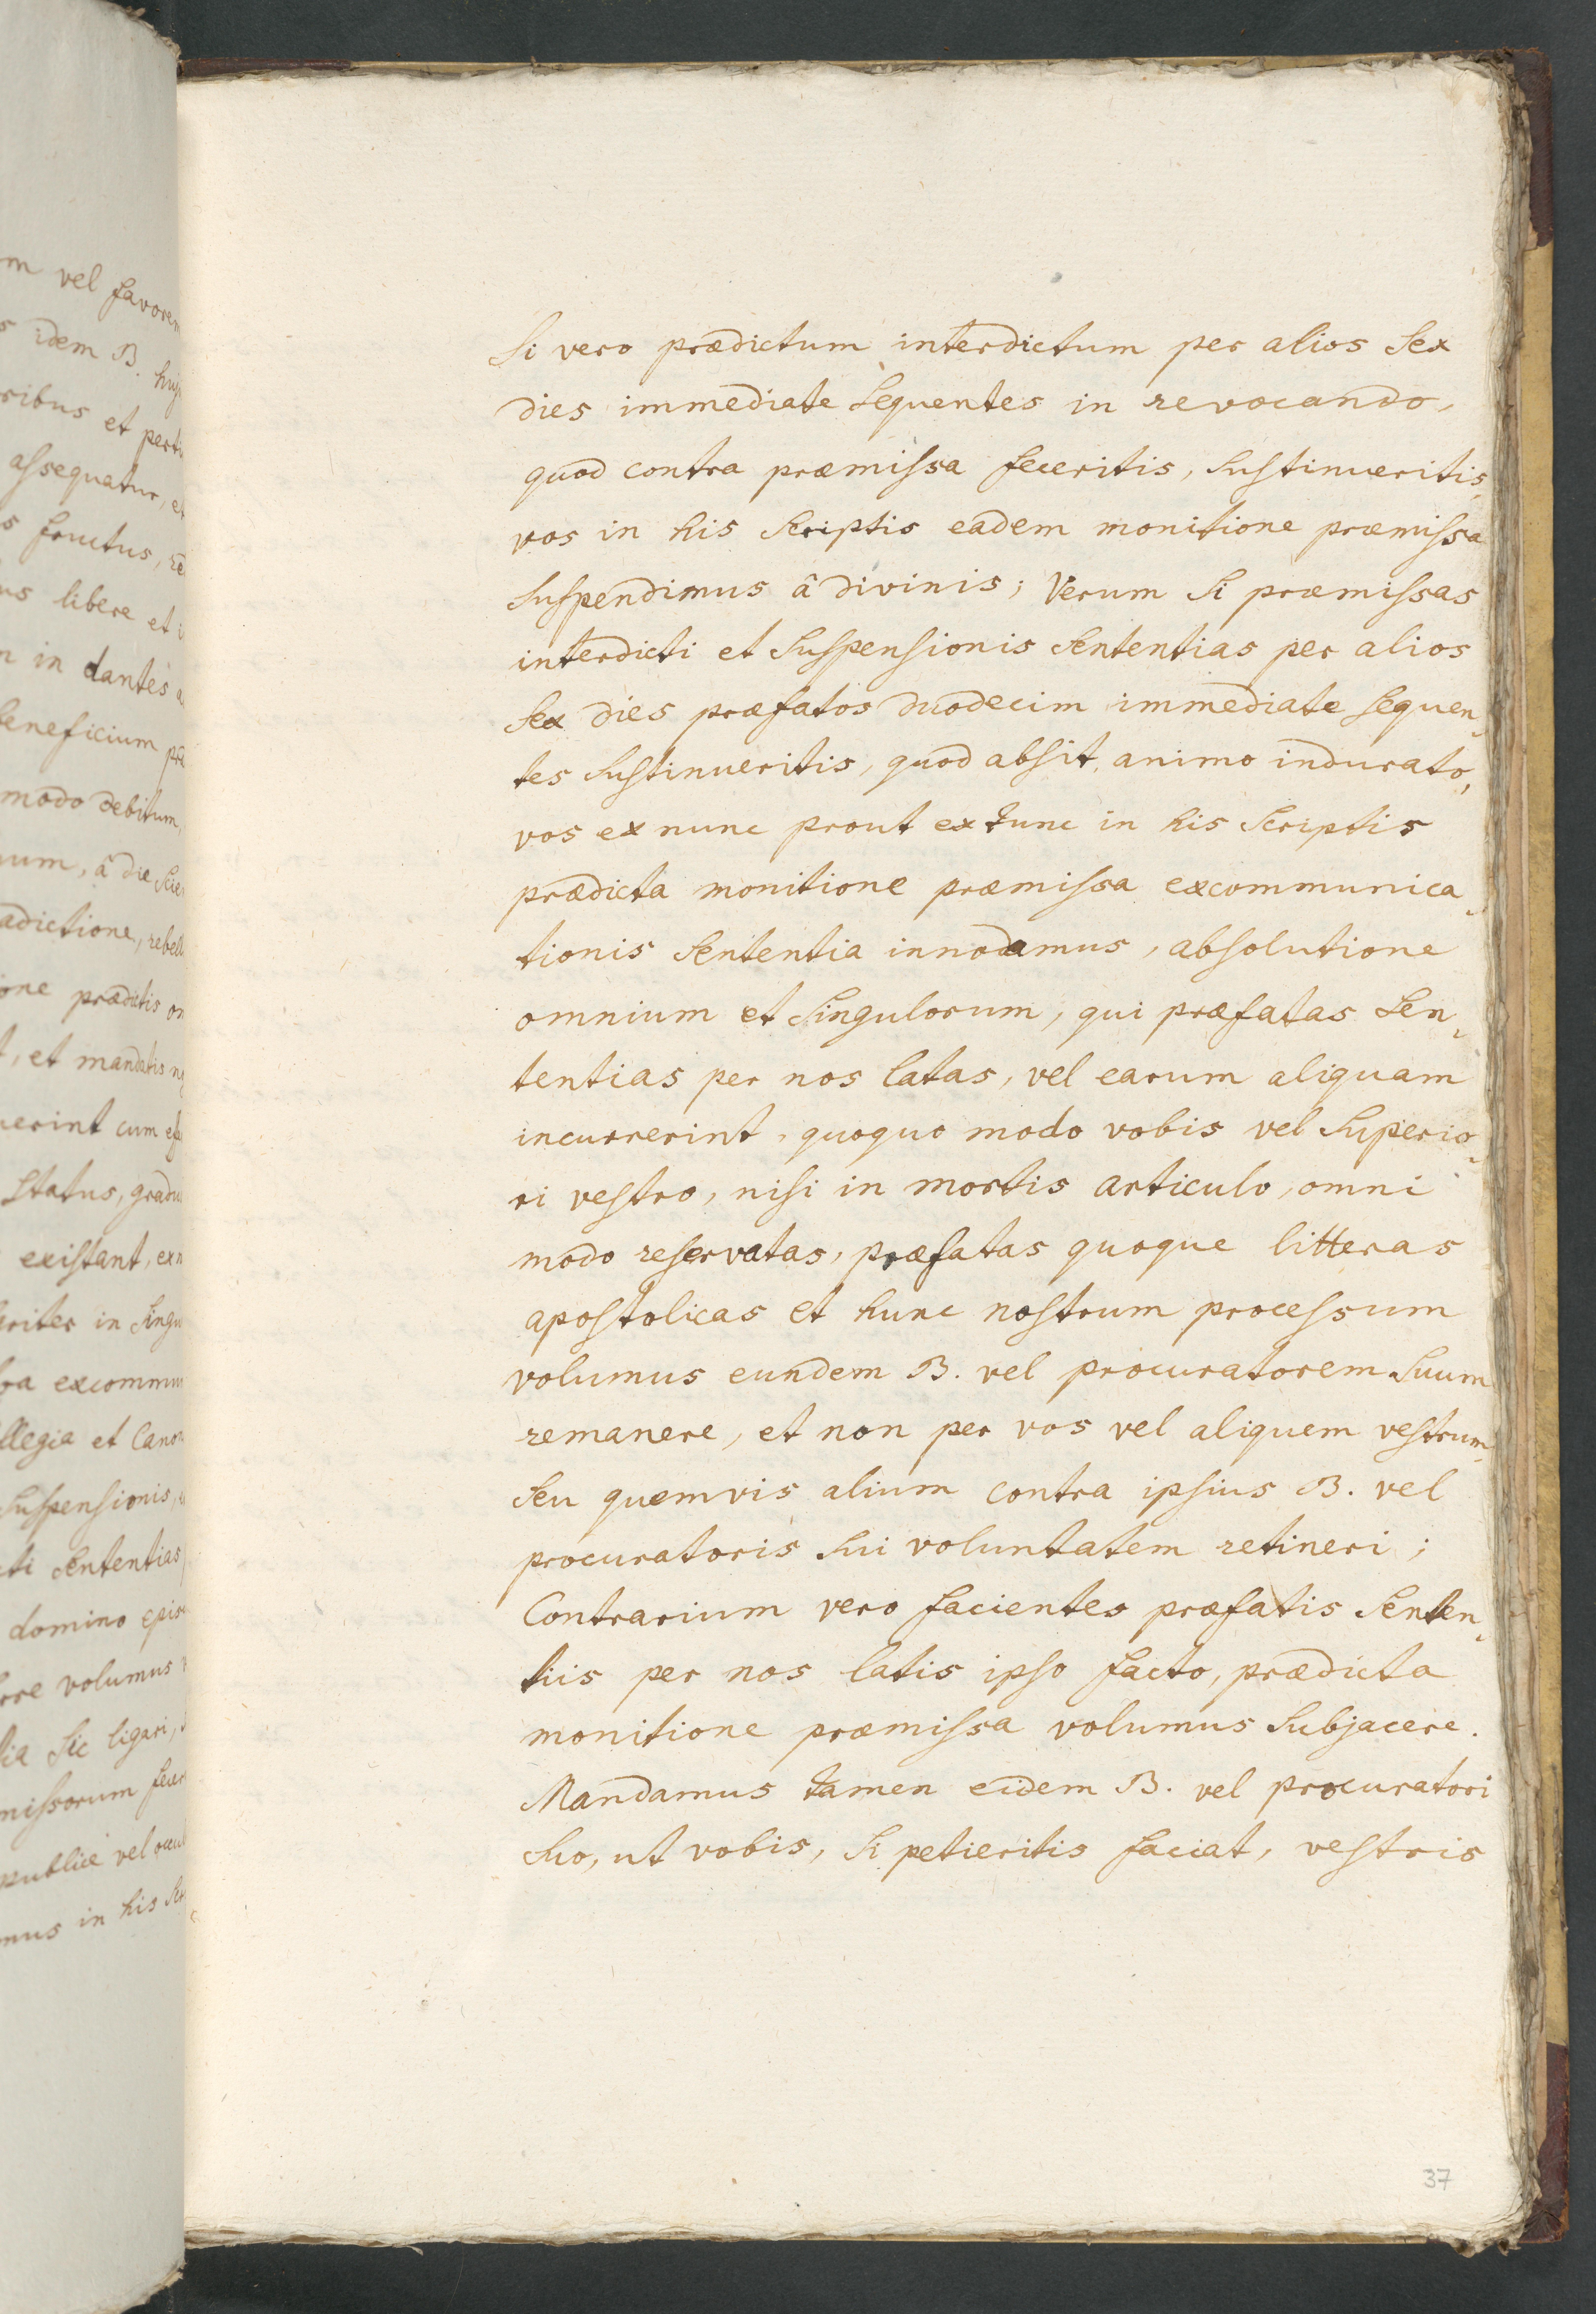 m vel favorem
s idem B. huj
ribus et perti
assequatur, et
s fructus, re
us libere et i
n in dantes a
beneficium præ
modo debitum,
uum, â die Scie
adictione, rebell
one prædictis om
t, et mandatis n
uerint cum eff
Status, gradu
existant, ex n
riter in Singu
excommun
llegia et Canon
Suspensionis,
cti Sententias
domino episc
rre volumus
lia Sic ligari,
missorum fecer
publice vel occul
mus in his Scr
Si vero prædictum interdictum per alios Sex
dies immediate Sequentes in revocando,
quod contra præmissa feceritis, Sustinueritis,
vos in his Scriptis eadem monitione præmissa
Suspendimus â divinis; Verum Si præmissas
interdicti et Suspensionis Sententias per alios
Sex dies præfatos duodecim immediate Sequen-
tes Sustinueritis, quod absit, animo indurato,
vos ex nunc prout ex tunc in his Scriptis
prædicta monitione præmissa excommunica-
tionis Sententia innodamus, absolutione
omnium et Singulorum, qui præfatas Sen-
tentias per nos latas, vel earum aliquam
incurrerint, quoquo modo vobis vel Superio-
ri vestro, nisi in mortis articulo, omni
modo reservatas, præfatas quoque litteras
apostolicas et hunc nostrum processum
volumus eundem B. vel procuratorem Suum
remanere, et non per vos vel aliquem vestrum,
Seu quemvis alium contra ipsius B. vel
procuratoris Sui voluntatem retineri;
Contrarium vero facientes præfatis Senten-
tiis per nos latis ipso facto, prædicta
monitione præmissa volumus Subjacere.
Mandamus tamen eidem B. vel procuratori
Suo, ut vobis, Si petieritis faciat, vestris
37